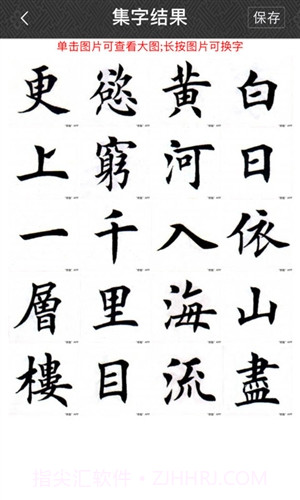 集字结果
保存
单击图片可查看大图;长按图片可换字
白日依山盡
黄河入海流
慾窮千里目
更上一層樓
指尖汇软件·ZJHHRJ.COM